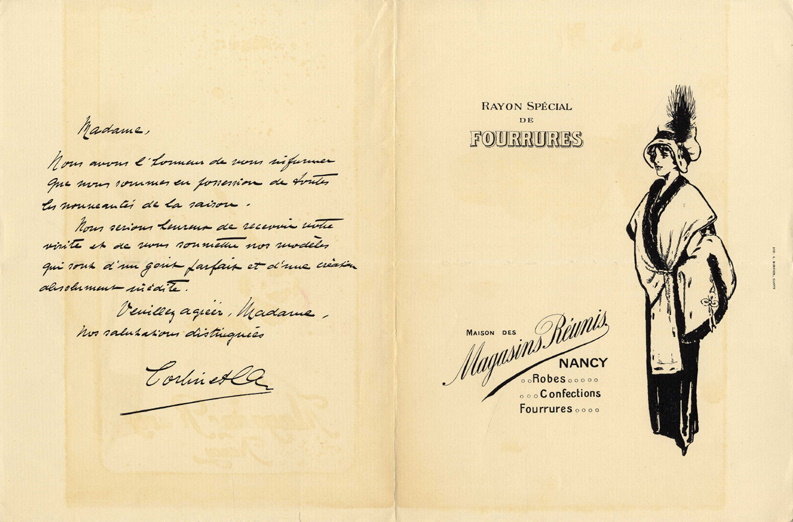 Madame,
Nous avons l'honneur de vous informer
que nous sommes en possession de toutes
les nouveautés de la saison.
Nous serions heureux de recevoir votre
visite et de vous soumettre nos modèles
qui sont d'un goût parfait et d'une création
absolument inédite.
Veuillez agréer, Madame,
nos salutations distinguées
RAYON SPÉCIAL
DE
FOURRURES
MAISON DES
Magasins Réunis
NANCY
Robes
Confections
Fourrures